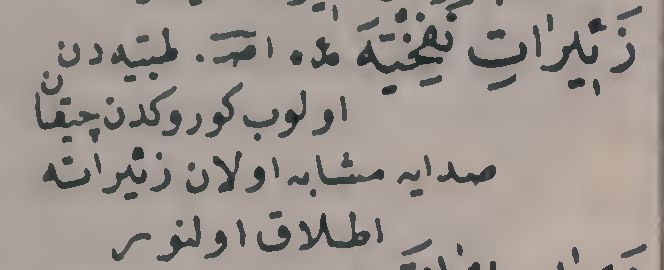 زَئیراتِ نَفِیخیّه اصـ. طبیه دن
اولوب كوروكدن چیقان
صدایه مشابه اولان زئیراته
اطلاق اولنور